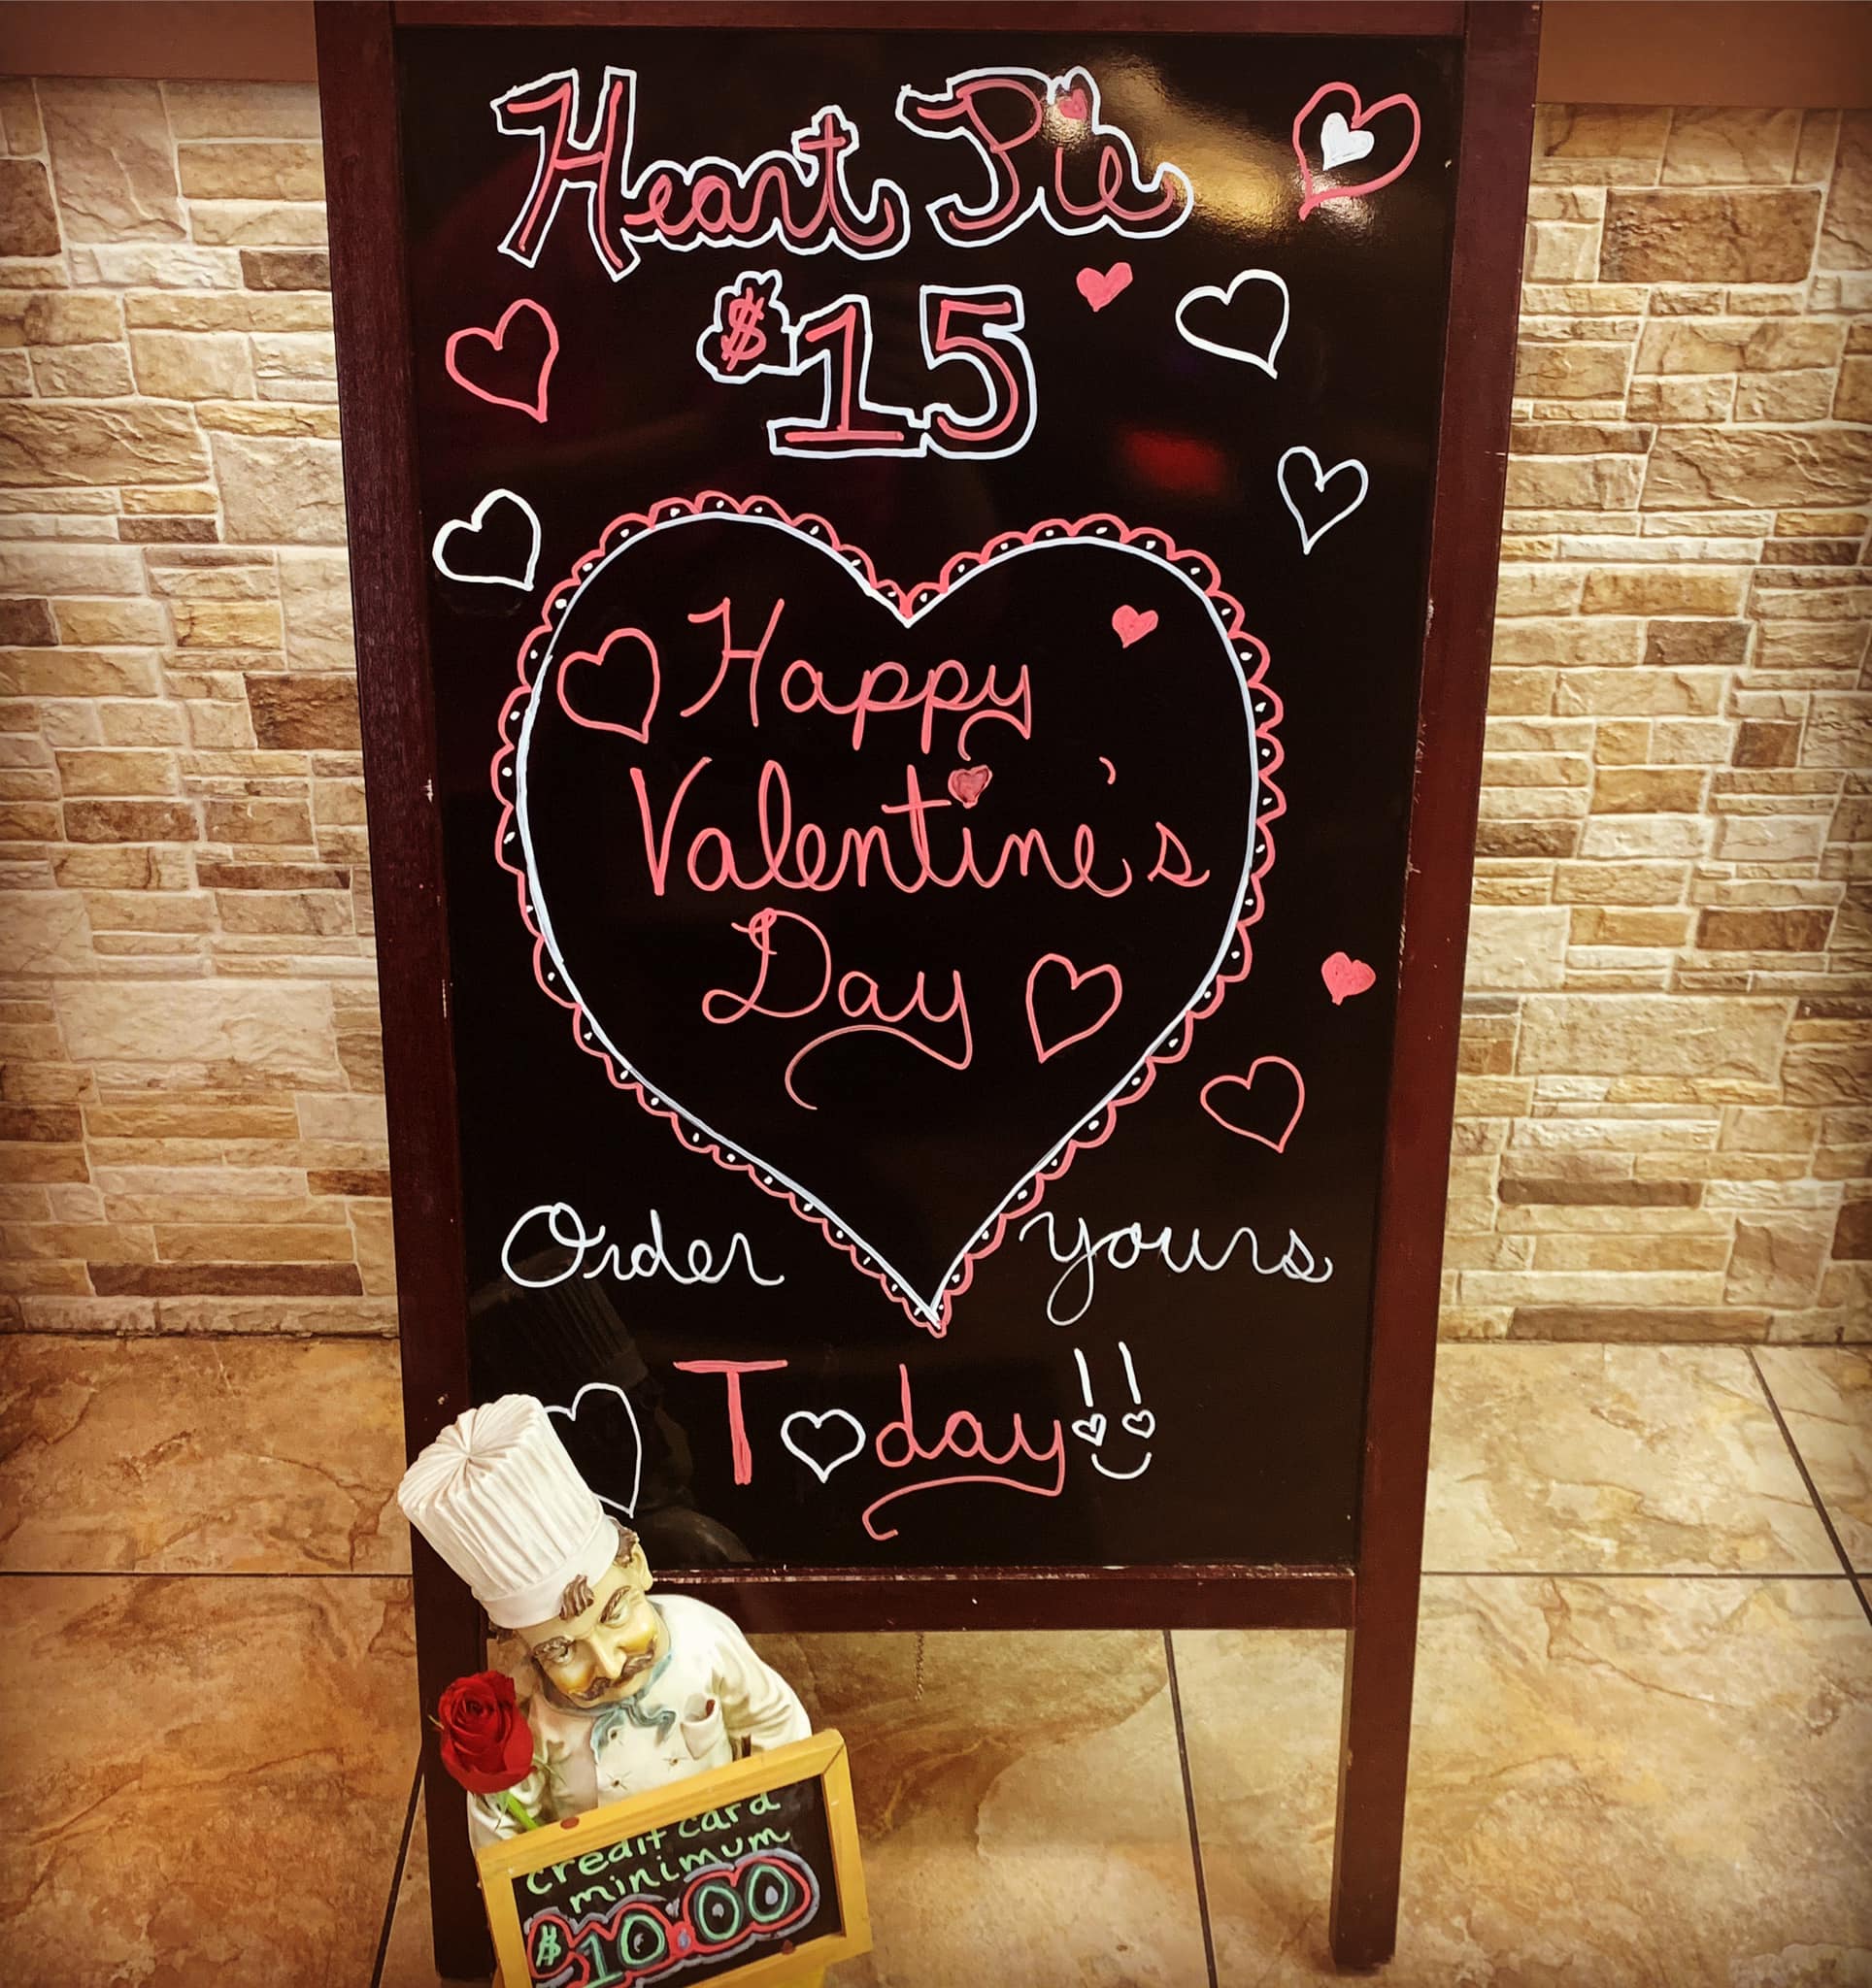 Heart Pie
$15
Happy
Valentine's
Day
Order yours
Today!!
credit card
minimum
$10.00